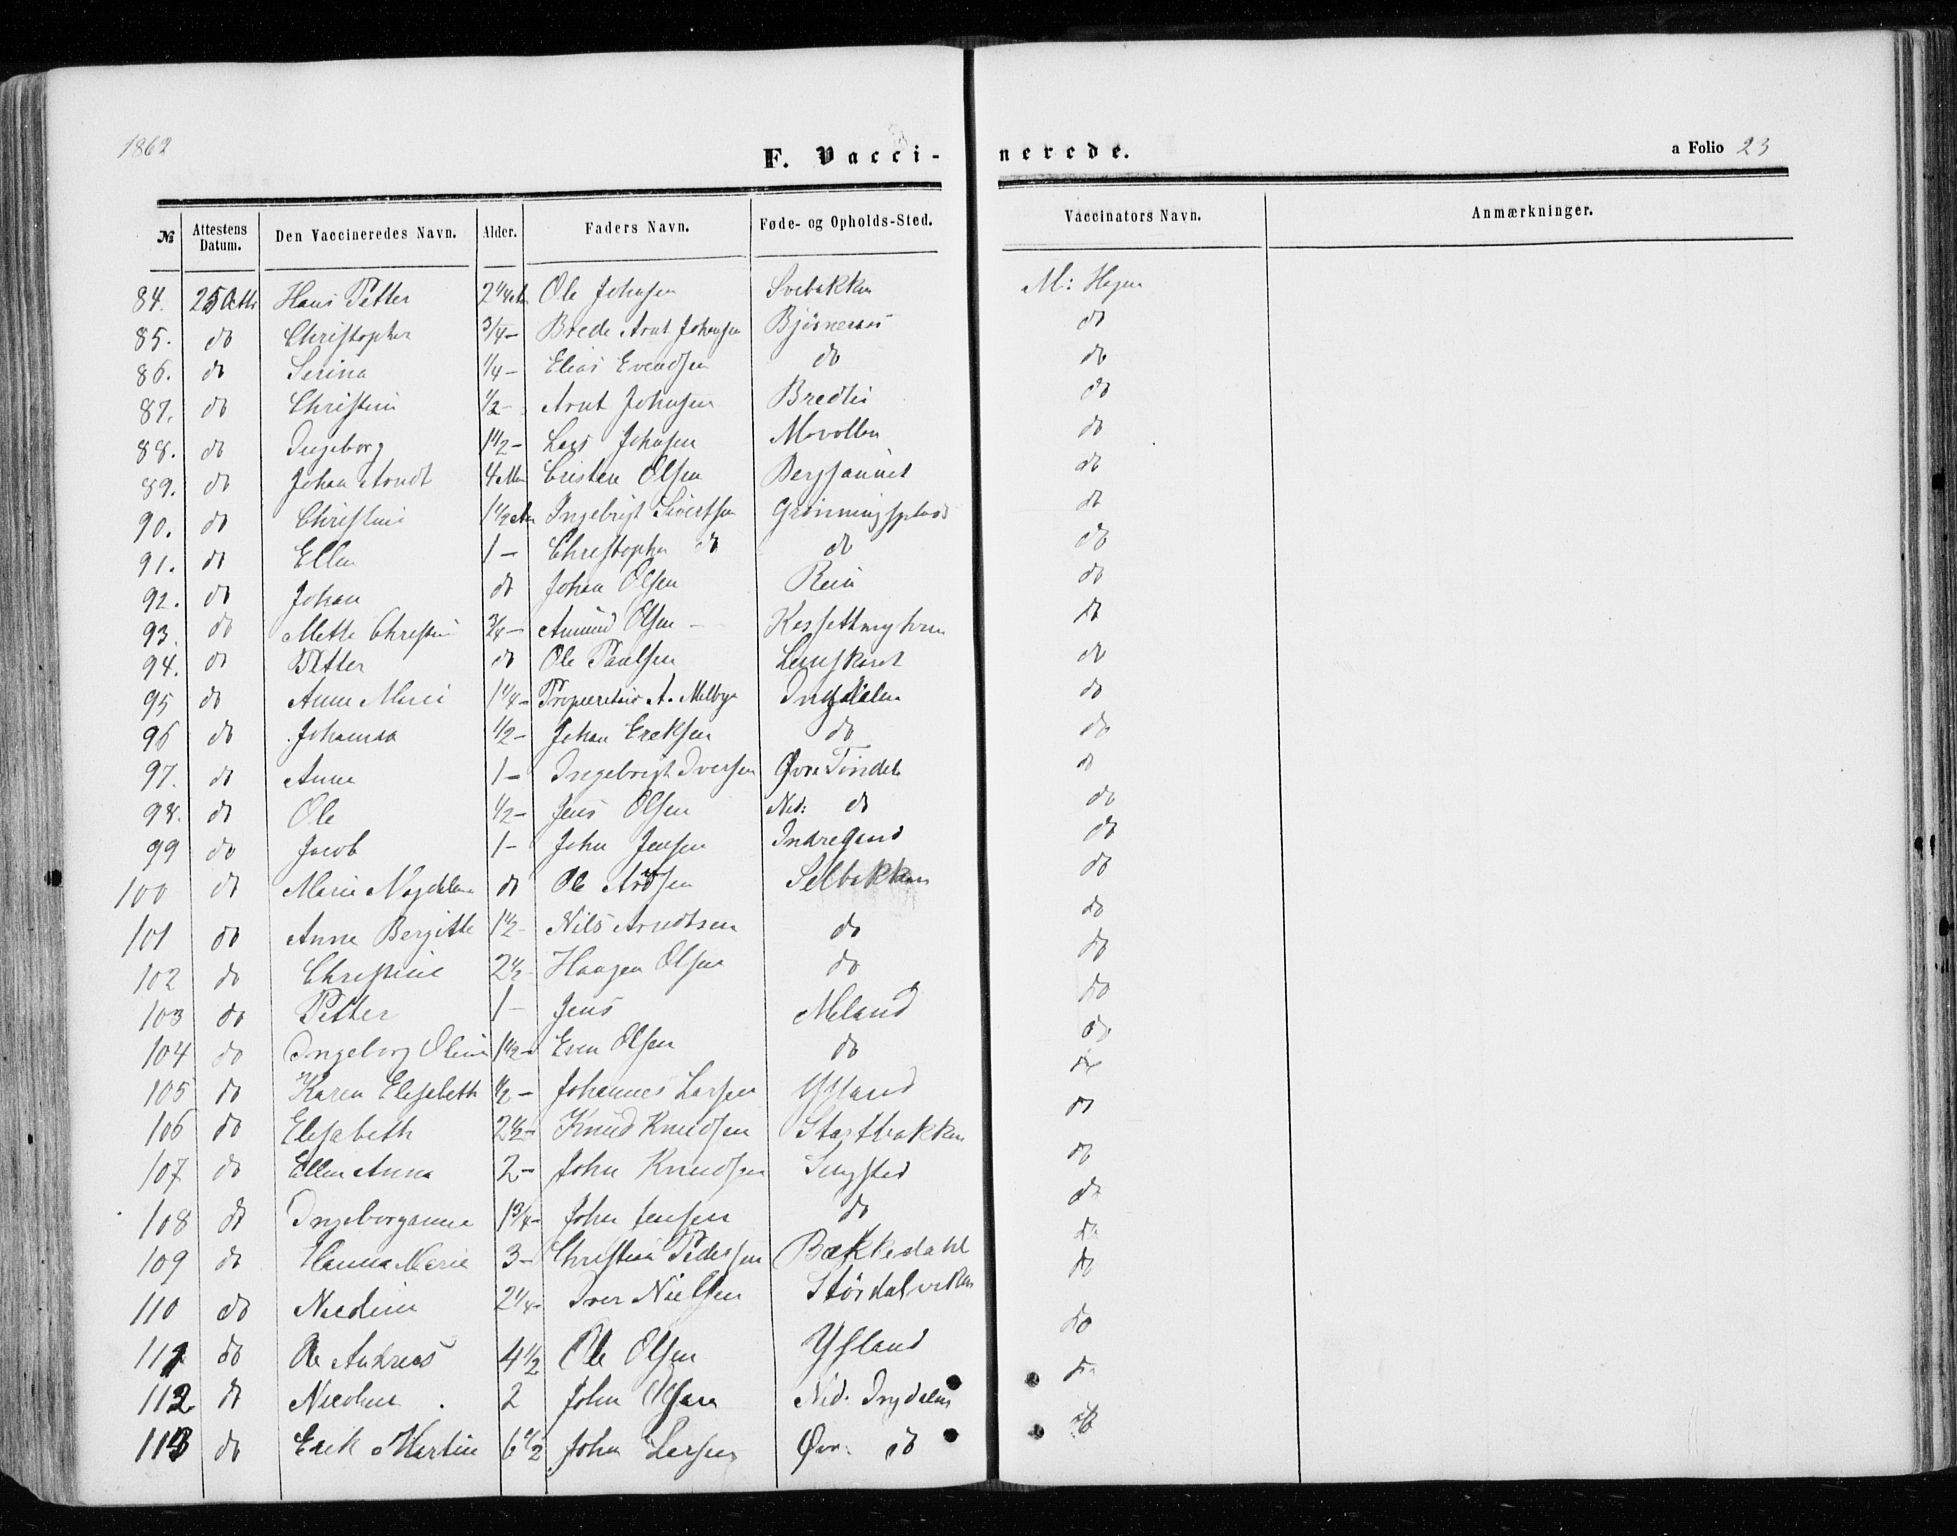 1862
F. Vaccinerede. a Folio 23
№ Attestens Datum. Den Vaccineredes Navn. Alder. Faders Navn. Føde- og Opholds-Sted. Vaccinators Navn. Anmærkninger.
84. 25 Hans Petter 2 1/4 Ole Johnsen M: Hagen
85. do Christopher 3/4 - Brede Arnt Johnsen do
86. do Serina 1/4 - Elias Evendsen do do
87. do Christine 1/2 - Arnt Johnsen Bredli do
88. do Ingeborg 1 1/2 - Lars Johnsen Movollen do
89. do Johan Arndt 4 Cristen Olsen do
90. do Christine 1 1/2 Ingebrigt Sivertsen Grønningsplads do
91. do Ellen 1 - Christopher do do do
92. do Johan do Johan Olsen Rein do
93. do Mette Christine 3/4 - Amund Olsen - do
94. do Petter do Ole Paulsen do
95 do Anne Marie 1 1/4 - Proprietær A. Melbye Inydalen do
96 do Johanna 1/2 - Johan Ereksen do do
97. do Anne 1 - Ingebrigt Iversen Øvre Tøndel do
98. do Ole 1/2 - Jens Olsen Ned: do do
99 do Jacob 1 - John Jensen Indregaard do
100 do Marie Magdalena do Ole Selbekken do
101 do Anne Bergitte 1 1/2 - Nils Arndtsen do do
102 do Christine 2 1/2 - Haagen Olsen do do
103 do Petter 1 - Jens Meland do
104 do Ingeborg Oline 1 1/2 - Even Olsen do do
105 do Karen Elisabeth 1/2 - Johannes Larsen Yfland do
106 do Elisabeth 2 1/2 - Knud Knudsen Startbakken do
107 do Ellen Anna 2 - John Knudsen Singsted do
108 do Ingeborganne 1 3/4 - John Jensen do do
109 do Hanna Marie 3 - Christian Pedersen Bækkedahl do
110 do Nicoline 2 1/4 - Iver Nielsen Størdalviken do
111 do Ole Andreas 4 1/2 Ole Olsen Yfland do
112 do Nicoline 2 John Olsen Ned. Inydalen do
113 do Erik Martin 6 1/2 John Larsen Øvr. do do